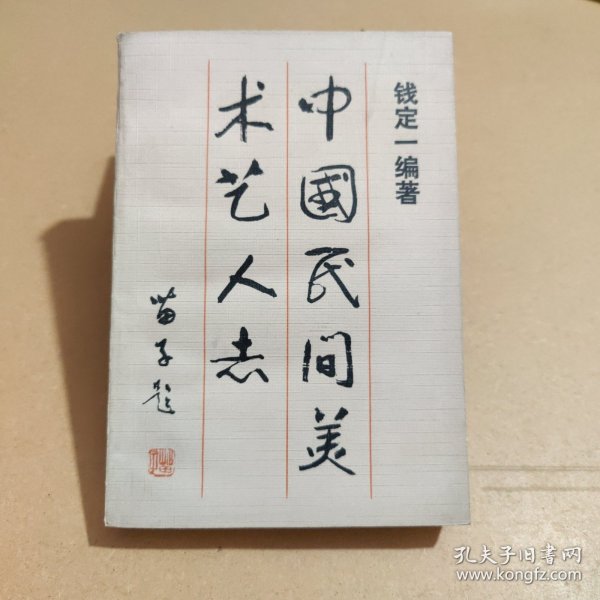 钱定一编著
中國民间美
术艺人志
苗子题
孔夫子旧书网
www.kongfz.com